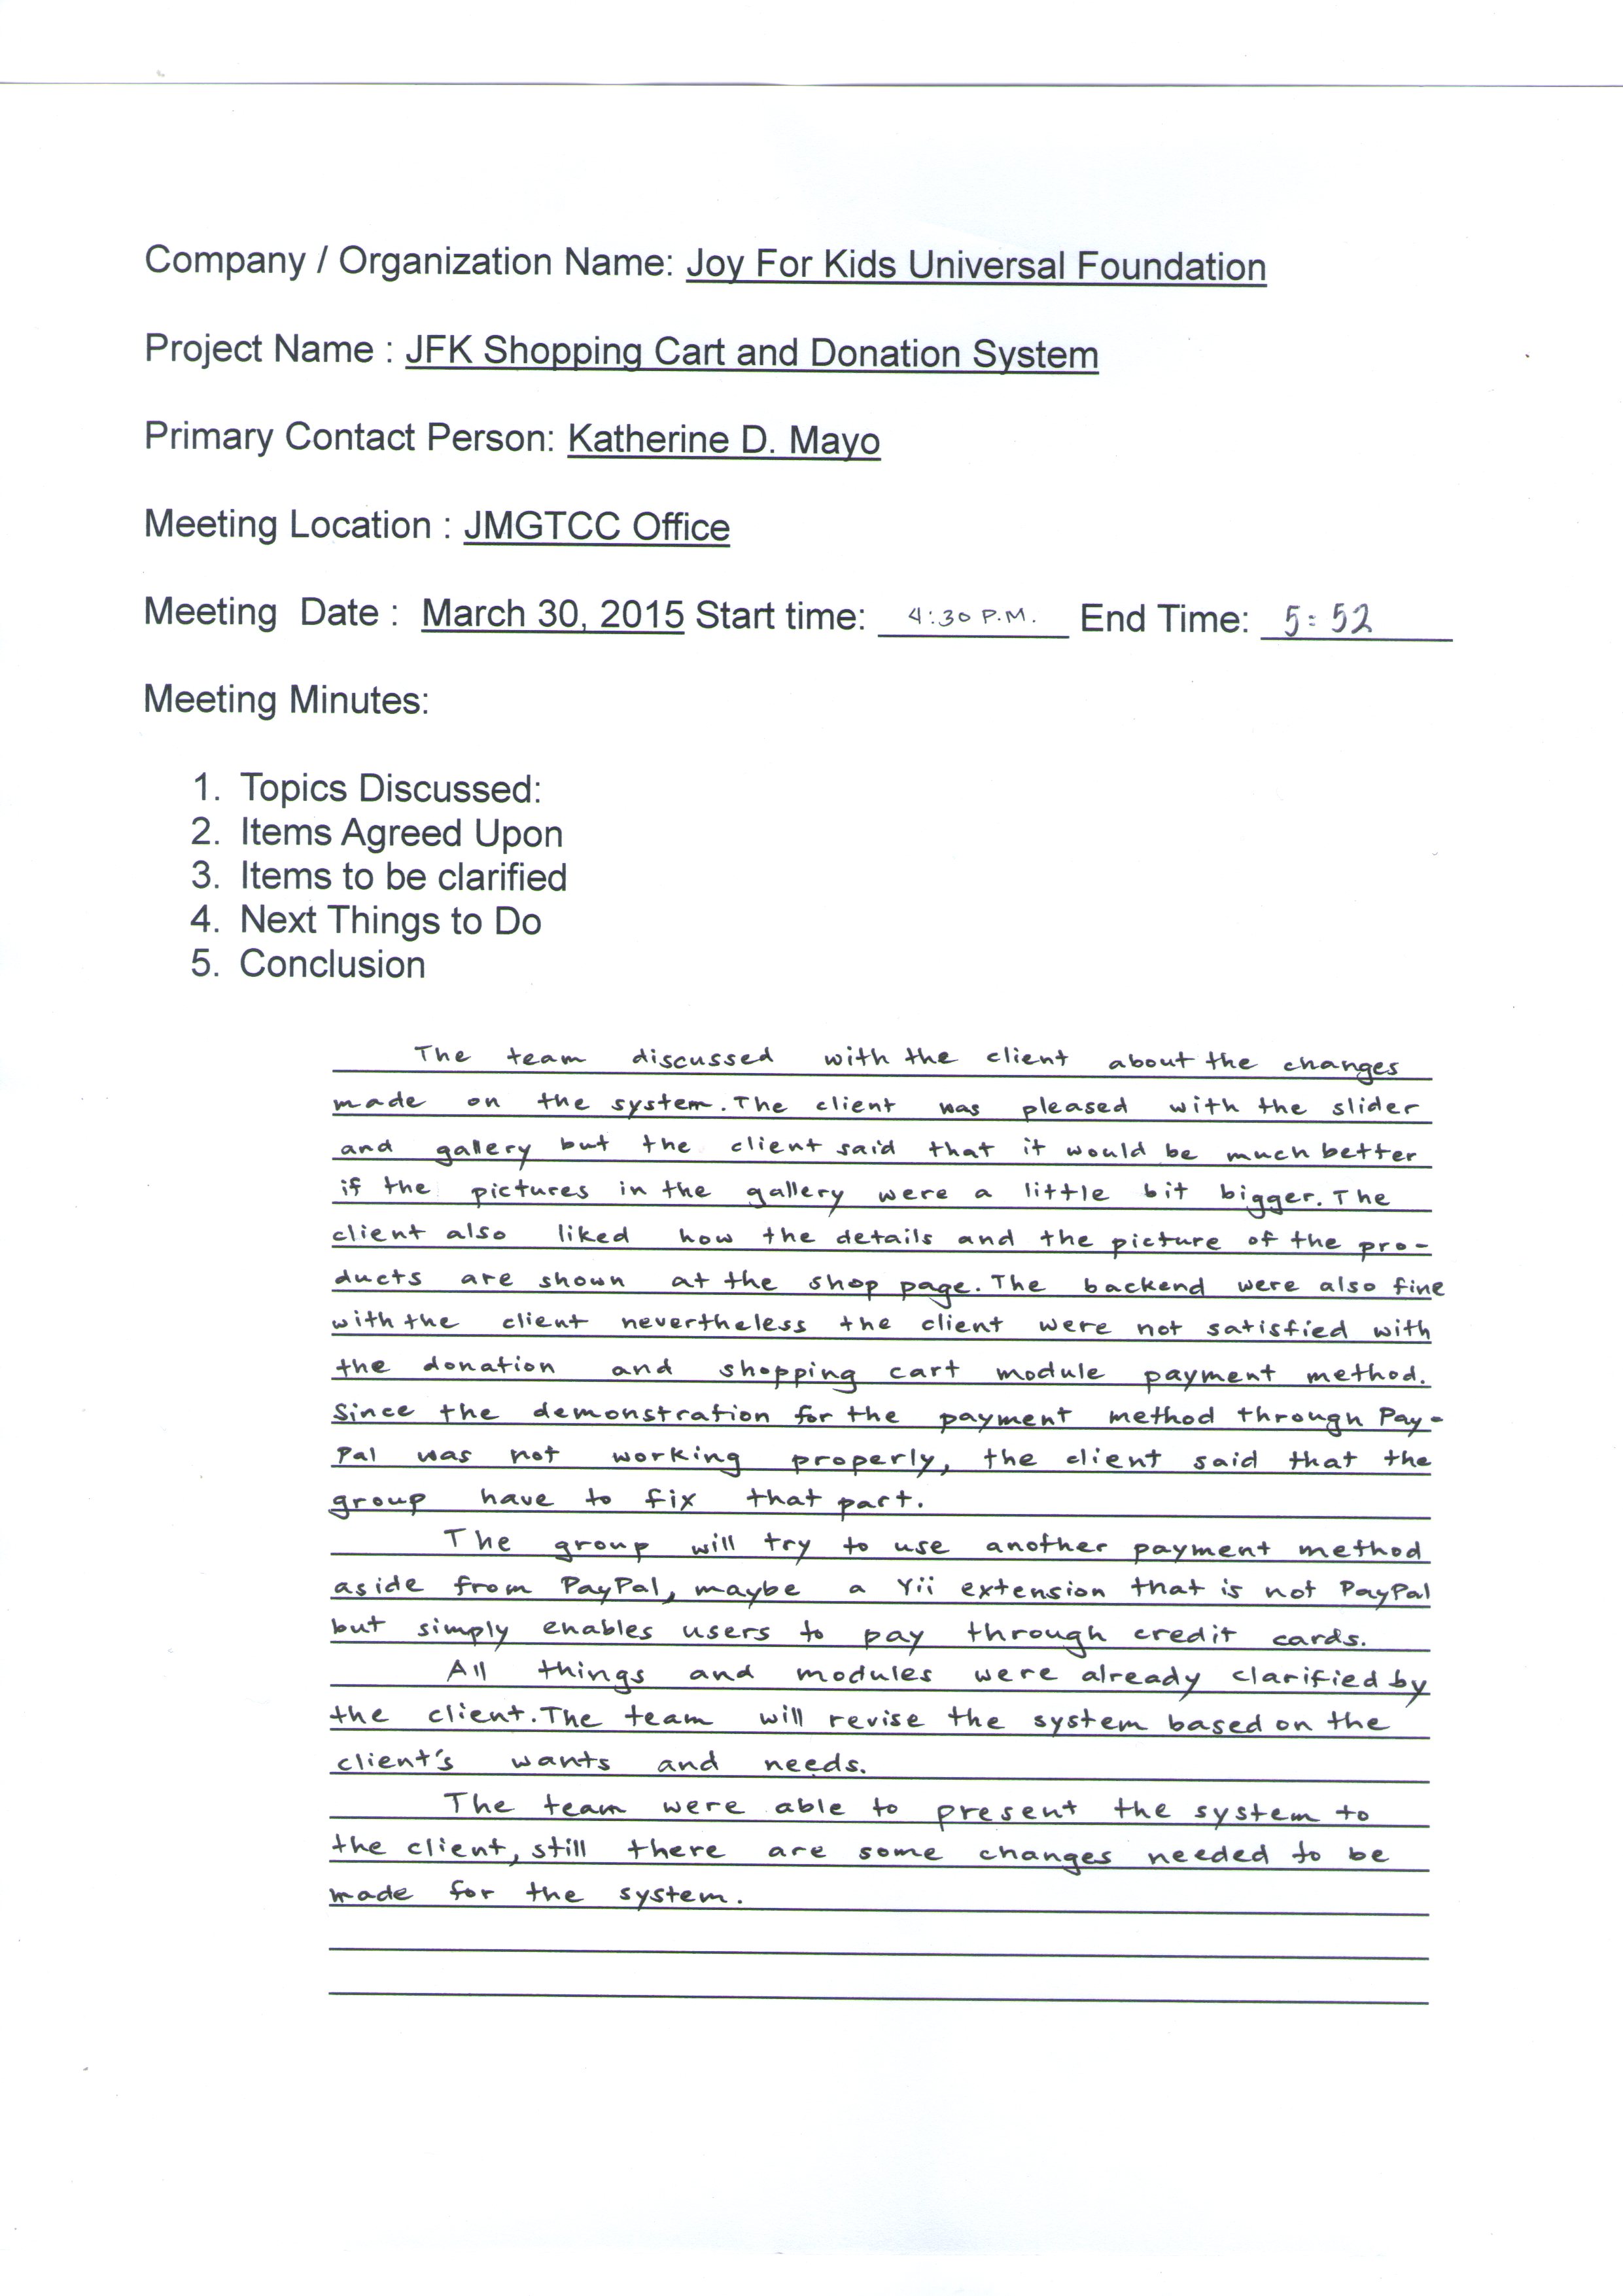 Company / Organization Name: Joy For Kids Universal Foundation
Project Name : JFK Shopping Cart and Donation System
Primary Contact Person: Katherine D. Mayo
Meeting Location : JMGTCC Office
Meeting Date : March 30, 2015 Start time: 4:30 P.M. End Time: 5:52
Meeting Minutes:
1. Topics Discussed:
2. Items Agreed Upon
3. Items to be clarified
4. Next Things to Do
5. Conclusion
The team discussed with the client about the changes
made on the system. The client was pleased with the slider
and gallery but the client said that it would be much better
if the pictures in the gallery were a little bit bigger. The
client also liked how the details and the picture of the pro-
ducts are shown at the shop page. The backend were also fine
with the client nevertheless the client were not satisfied with
the donation and shopping cart module payment method.
Since the demonstration for the payment method through Pay-
Pal was not working properly, the client said that the
group have to fix that part.
The group will try to use another payment method
aside from PayPal, maybe a Yii extension that is not PayPal
but simply enables users to pay through credit cards.
All things and modules were already clarified by
the client. The team will revise the system based on the
client's wants and needs.
The team were able to present the system to
the client, still there are some changes needed to be
made for the system.